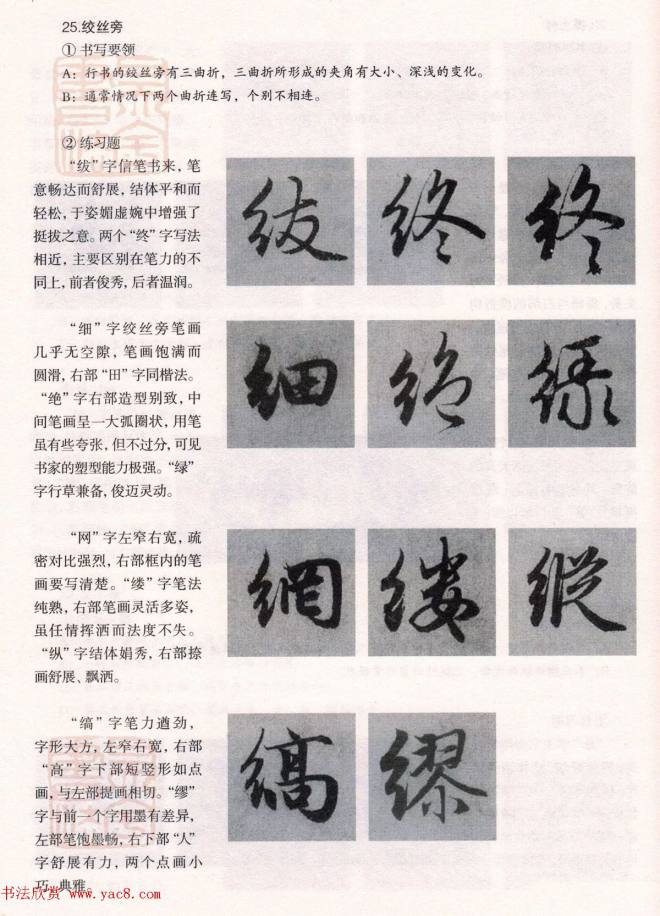 25.绞丝旁
① 书写要领
A：行书的绞丝旁有三曲折，三曲折所形成的夹角有大小、深浅的变化。
B：通常情况下两个曲折连写，个别不相连。
② 练习题
“绂”字信笔书来，笔
意畅达而舒展，结体平和而
轻松，于姿媚虚婉中增强了
挺拔之意。两个“终”字写法
相近，主要区别在笔力的不
同上，前者俊秀，后者温润。
绂 终 终
“细”字绞丝旁笔画
几乎无空隙，笔画饱满而
圆滑，右部“田”字同楷法。
“绝”字右部造型别致，中
间笔画呈一大弧圈状，用笔
虽有些夸张，但不过分，可见
书家的塑型能力极强。“绿”
字行草兼备，俊迈灵动。
細 絶 緑
“网”字左窄右宽，疏
密对比强烈，右部框内的笔
画要写清楚。“缕”字笔法
纯熟，右部笔画灵活多姿，
虽任情挥洒而法度不失。
“纵”字结体娟秀，右部捺
画舒展、飘洒。
網 縷 縱
“缟”字笔力遒劲，
字形大方，左窄右宽，右部
“高”字下部短竖形如点
画，与左部提画相切。“缪”
字与前一个字用墨有差异，
左部笔饱墨畅，右下部“人”
字舒展有力，两个点画小
巧、典雅。
縞 繆
书法欣赏 www.yac8.com